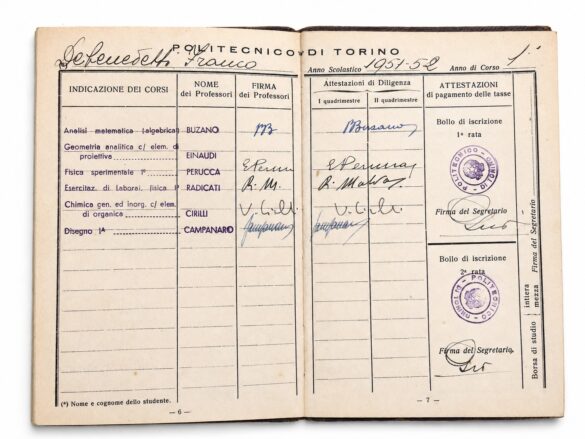 POLITECNICO DI TORINO
Debenedetti Franco
Anno Scolastico 1951-52 Anno di Corso 1°
INDICAZIONE DEI CORSI
NOME
dei Professori
FIRMA
dei Professori
Attestazioni di Diligenza
I quadrimestre II quadrimestre
ATTESTAZIONI
di pagamento delle tasse
Analisi matematica (algebrica) BUZANO
Buzano
Geometria analitica c/ elem. di
proiettiva EINAUDI
Fisica sperimentale 1° PERUCCA
Esercitaz. di Laborai. fisica 1° RADICATI
Chimica gen. ed inorg. c/ elem.
di organica CIRILLI
Disegno 1ª CAMPANARO
Campanaro
Campanaro
Bollo di iscrizione
1ª rata
POLITECNICO DI TORINO
Firma del Segretario
Bollo di iscrizione
2ª rata
POLITECNICO DI TORINO
Firma del Segretario
Borsa di studio intiera mezza Firma del Segretario
(*) Nome e cognome dello studente.
– 6 –
– 7 –